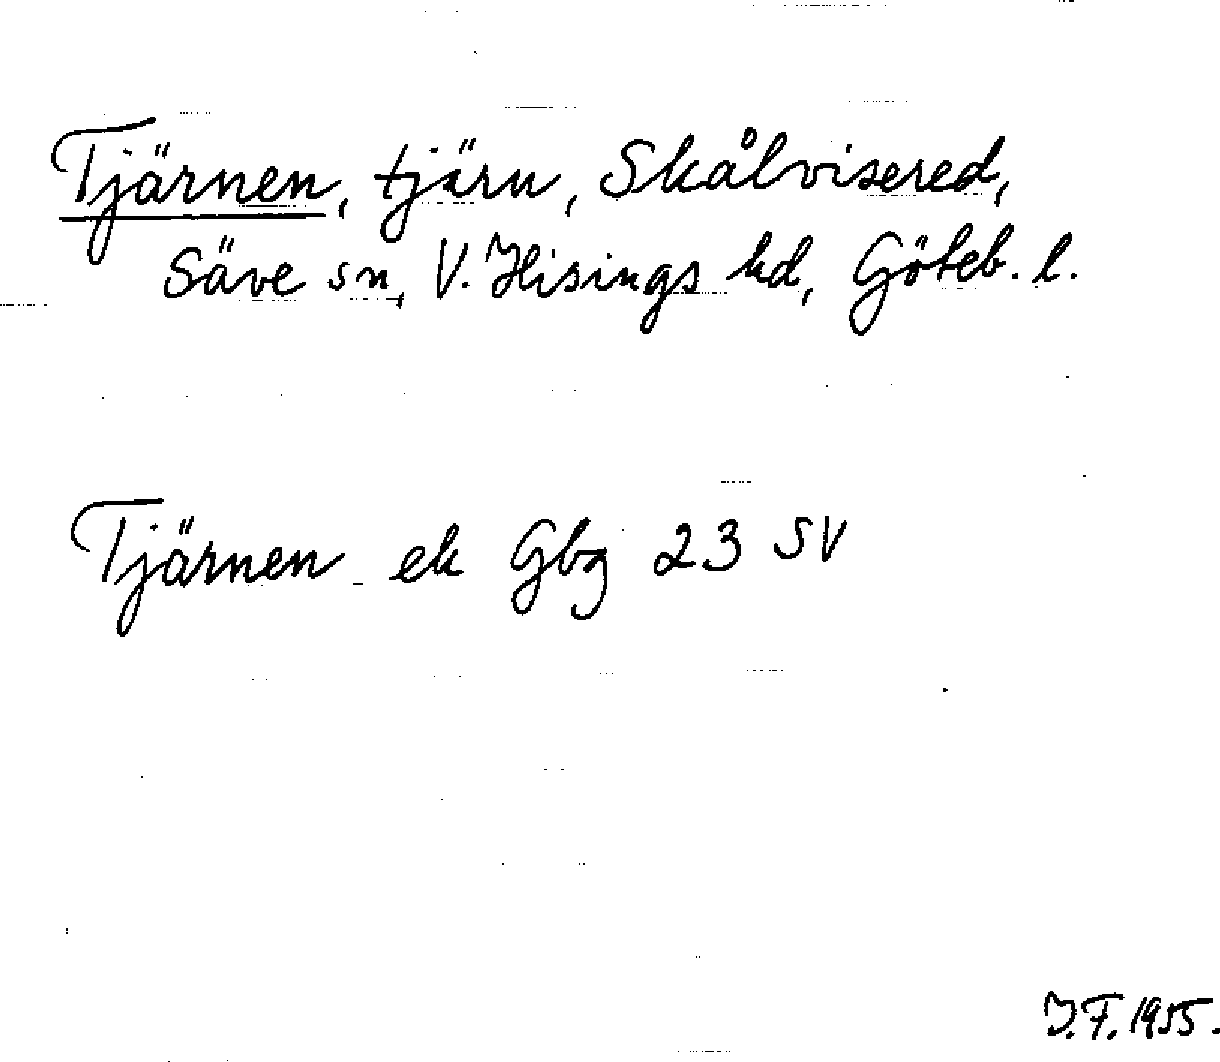 Tjärnen, tjärn, Skålvisered,
Säve sn, V. Hisings hd, Göteb. l.
Tjärnen ek Gbg 23 SV
I.F. 1955.